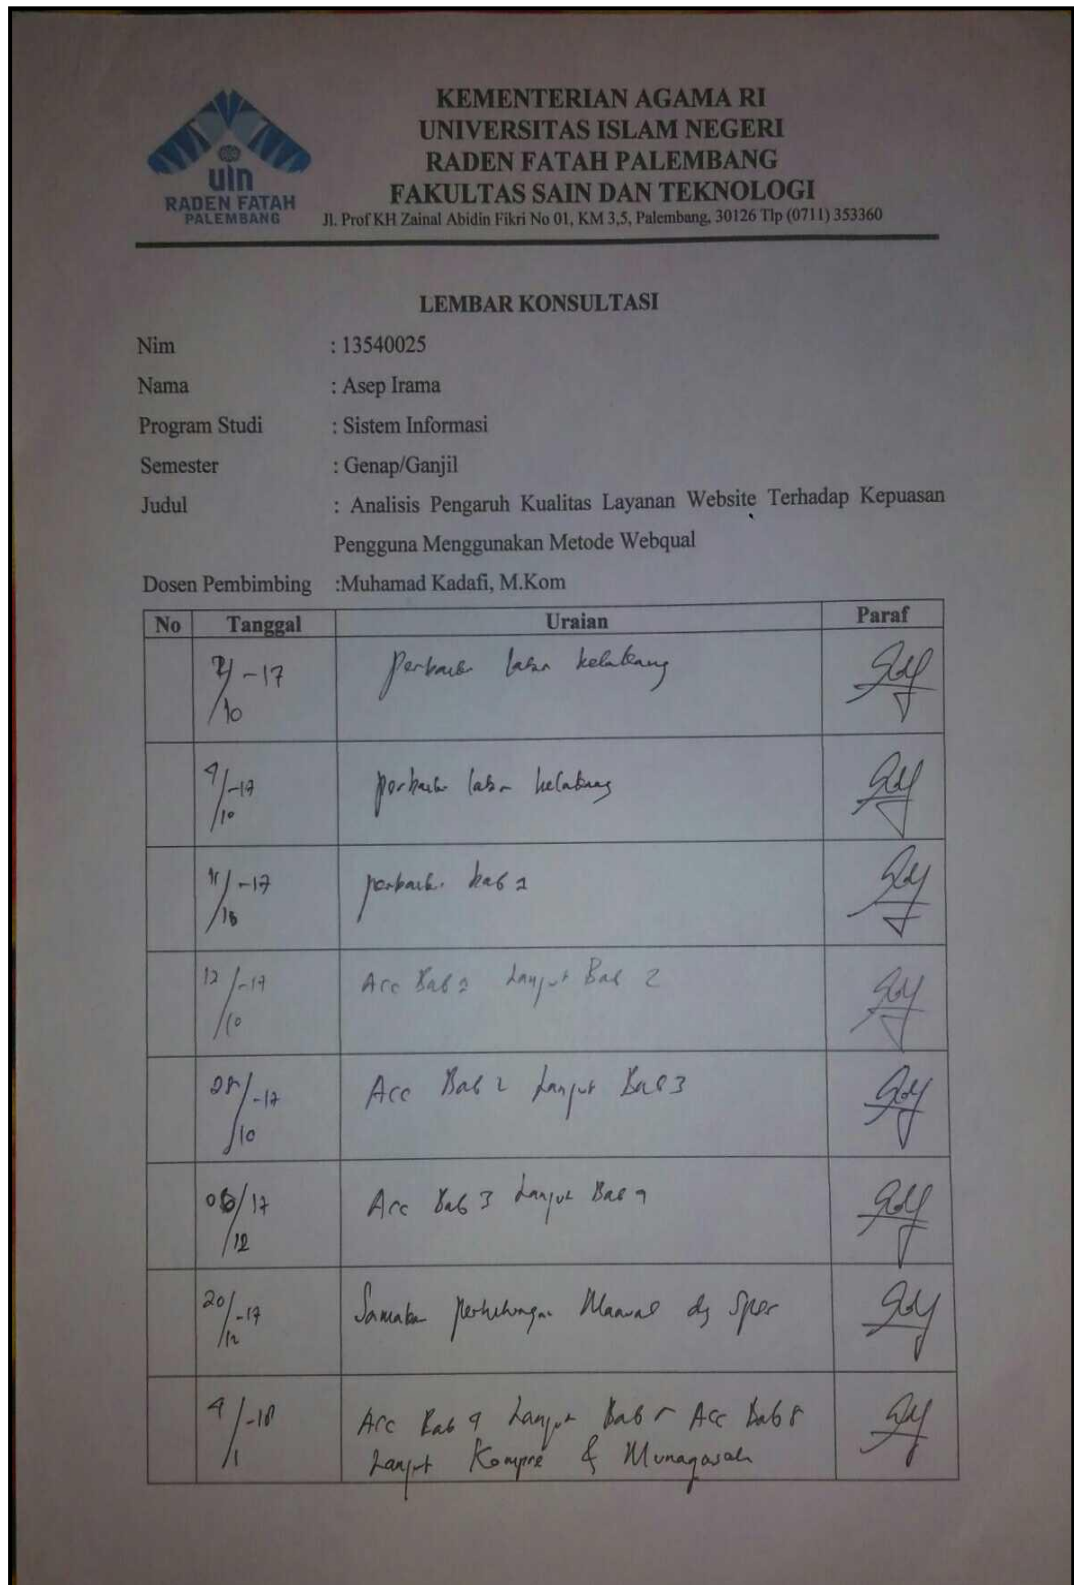 KEMENTERIAN AGAMA RI
UNIVERSITAS ISLAM NEGERI
RADEN FATAH PALEMBANG
FAKULTAS SAIN DAN TEKNOLOGI
Jl. Prof KH Zainal Abidin Fikri No 01, KM 3,5, Palembang, 30126 Tlp (0711) 353360
uin
RADEN FATAH
PALEMBANG
LEMBAR KONSULTASI
Nim : 13540025
Nama : Asep Irama
Program Studi : Sistem Informasi
Semester : Genap/Ganjil
Judul : Analisis Pengaruh Kualitas Layanan Website Terhadap Kepuasan
Pengguna Menggunakan Metode Webqual
Dosen Pembimbing :Muhamad Kadafi, M.Kom
No Tanggal Uraian Paraf
-17 /10 Perbaiki latar belakang
-17 /10 perbaiki latar belakang
-17 perbaiki bab 1
12/-17 /10 Acc Bab 1 Lanjut Bab 2
-17 /10 Acc Bab 2 Lanjut Bab 3
17 /12 Acc Bab 3 Lanjut Bab 4
20/-17 /12 Samakan perhitungan Manual dg Spss
4/-18 /1 Acc Bab 4 Lanjut Bab 5 Acc Bab 5
Lanjut Kompre & Munaqasah